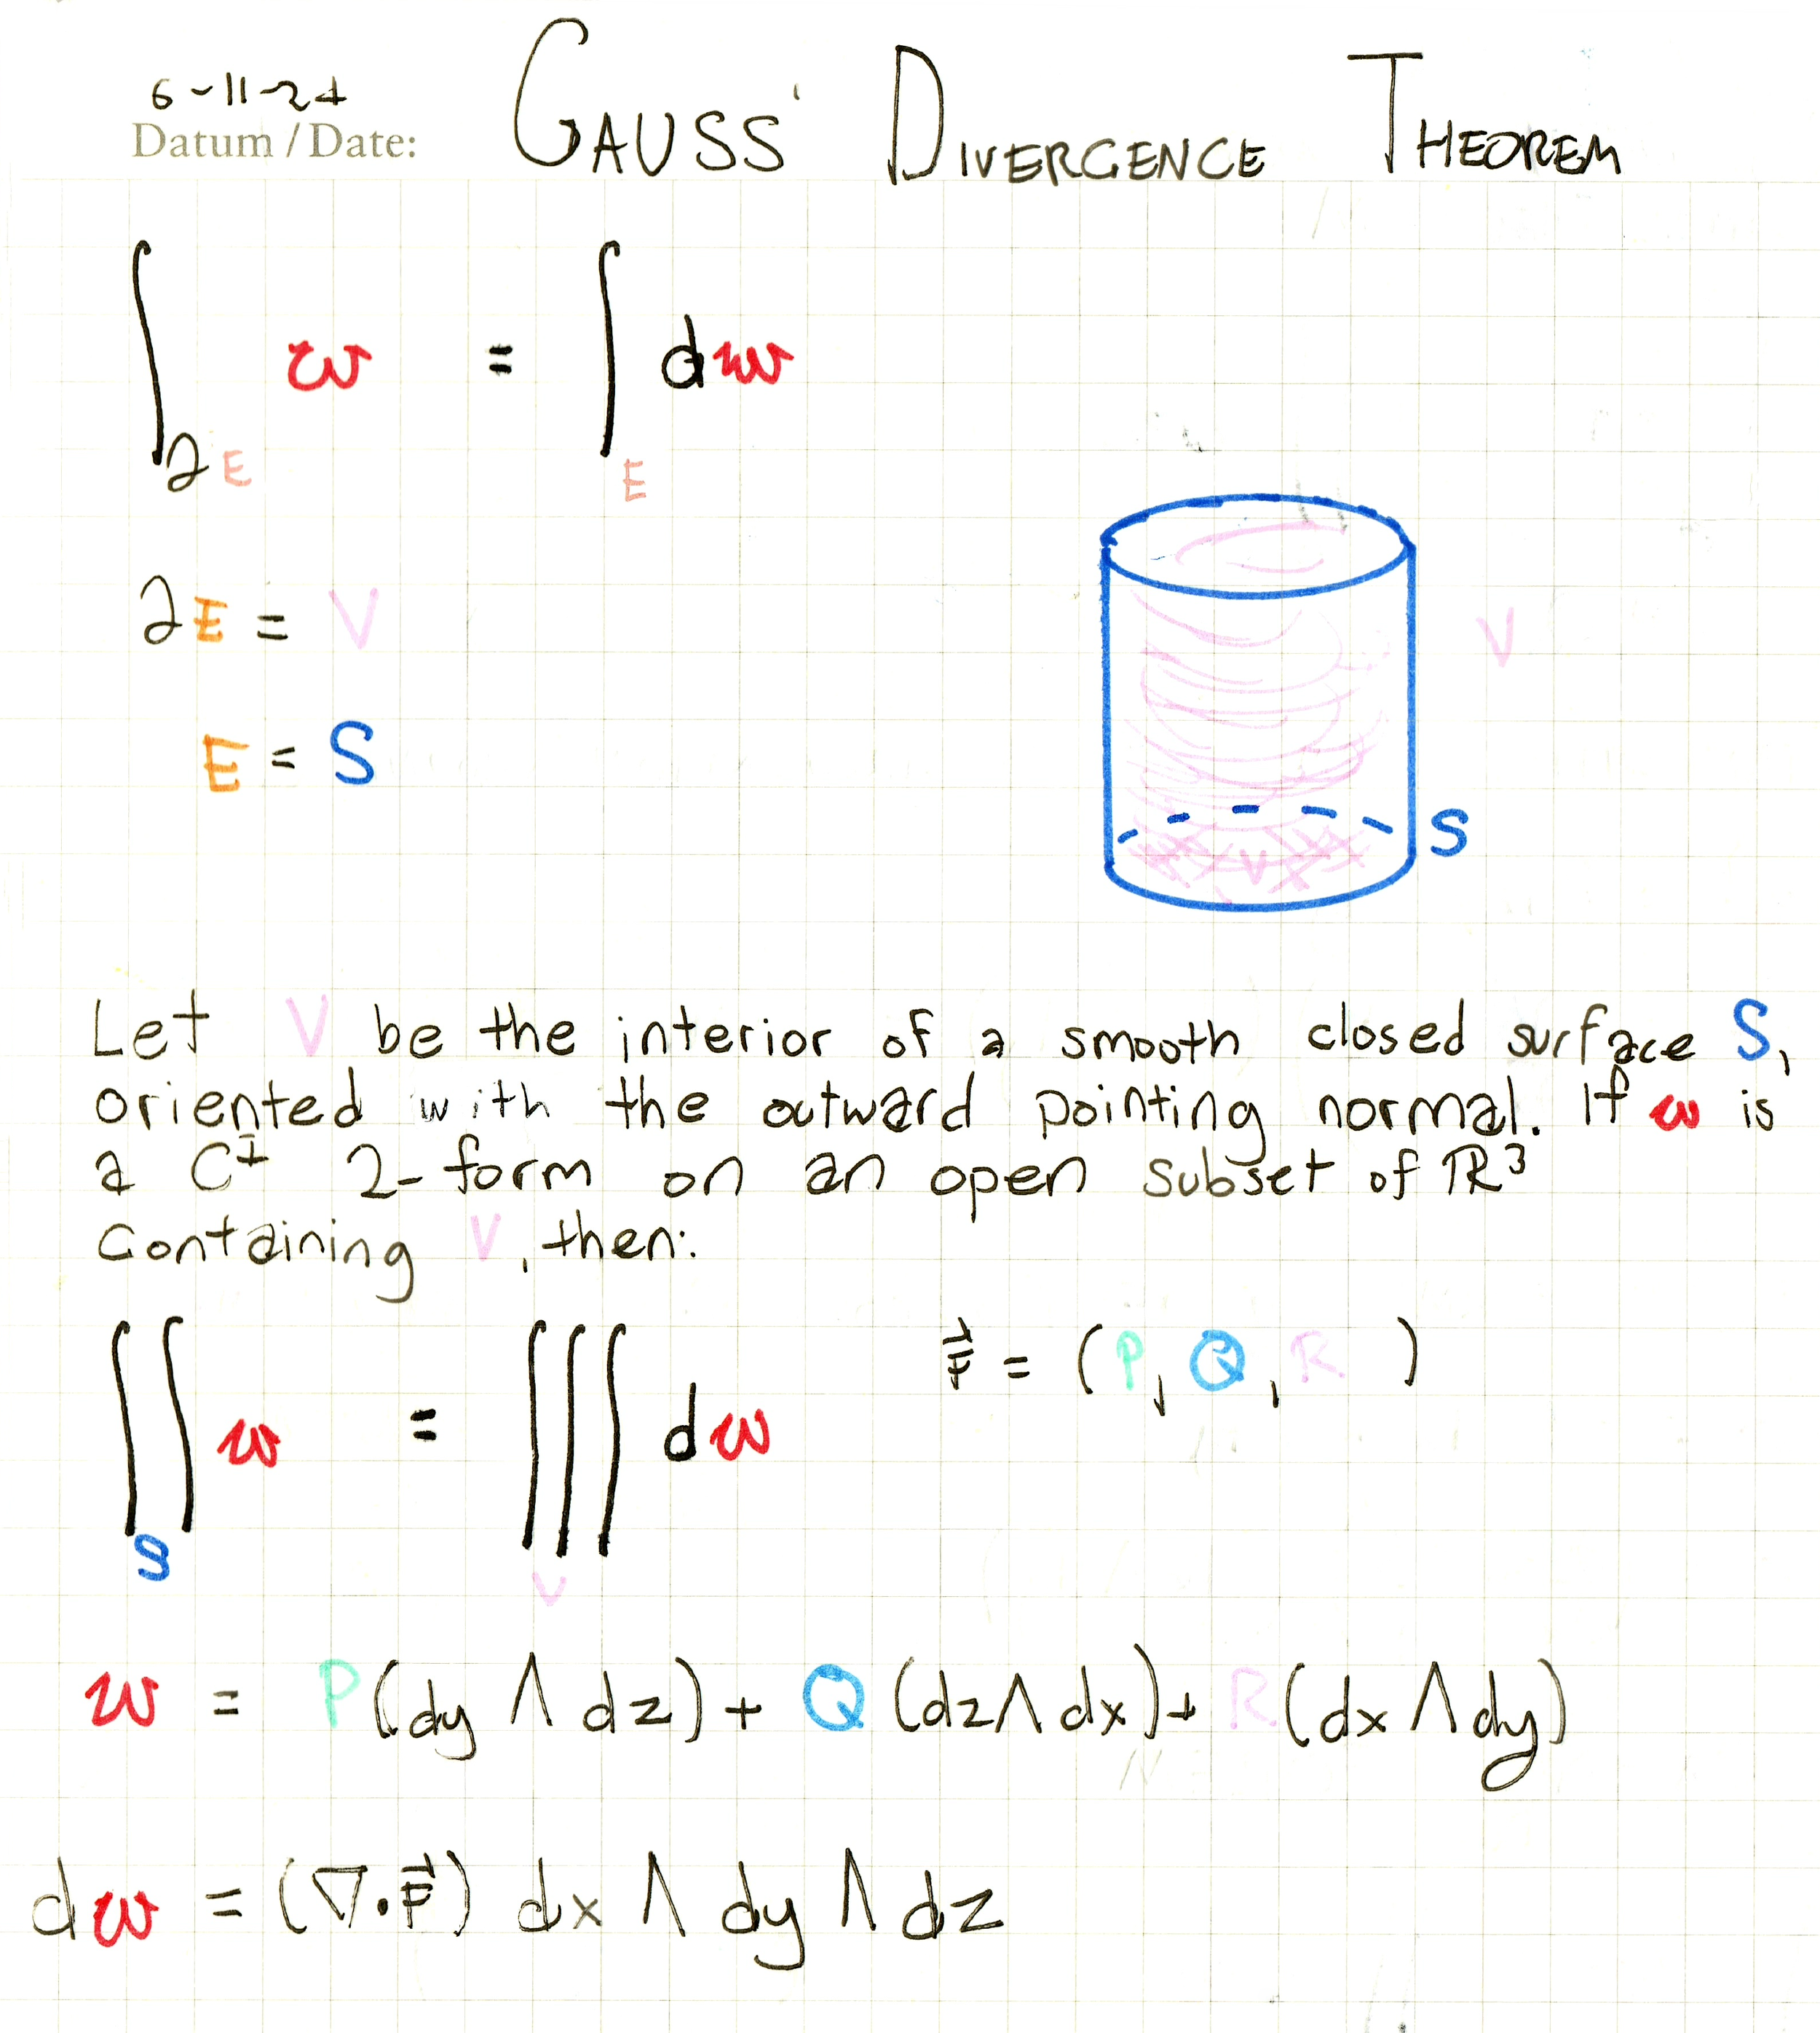 6-11-24
Datum / Date:
GAUSS' DIVERGENCE THEOREM
∫_∂E ω = ∫_E dω
∂E = V
E = S
V
S
V
Let V be the interior of a smooth closed surface S,
oriented with the outward pointing normal. If ω is
a C^1 2-form on an open subset of ℝ³
containing V, then:
∬_S ω = ∭_V dω
F⃗ = (P, Q, R )
ω = P(dy ∧ dz) + Q (dz ∧ dx) + R (dx ∧ dy)
dω = (∇·F⃗) dx ∧ dy ∧ dz